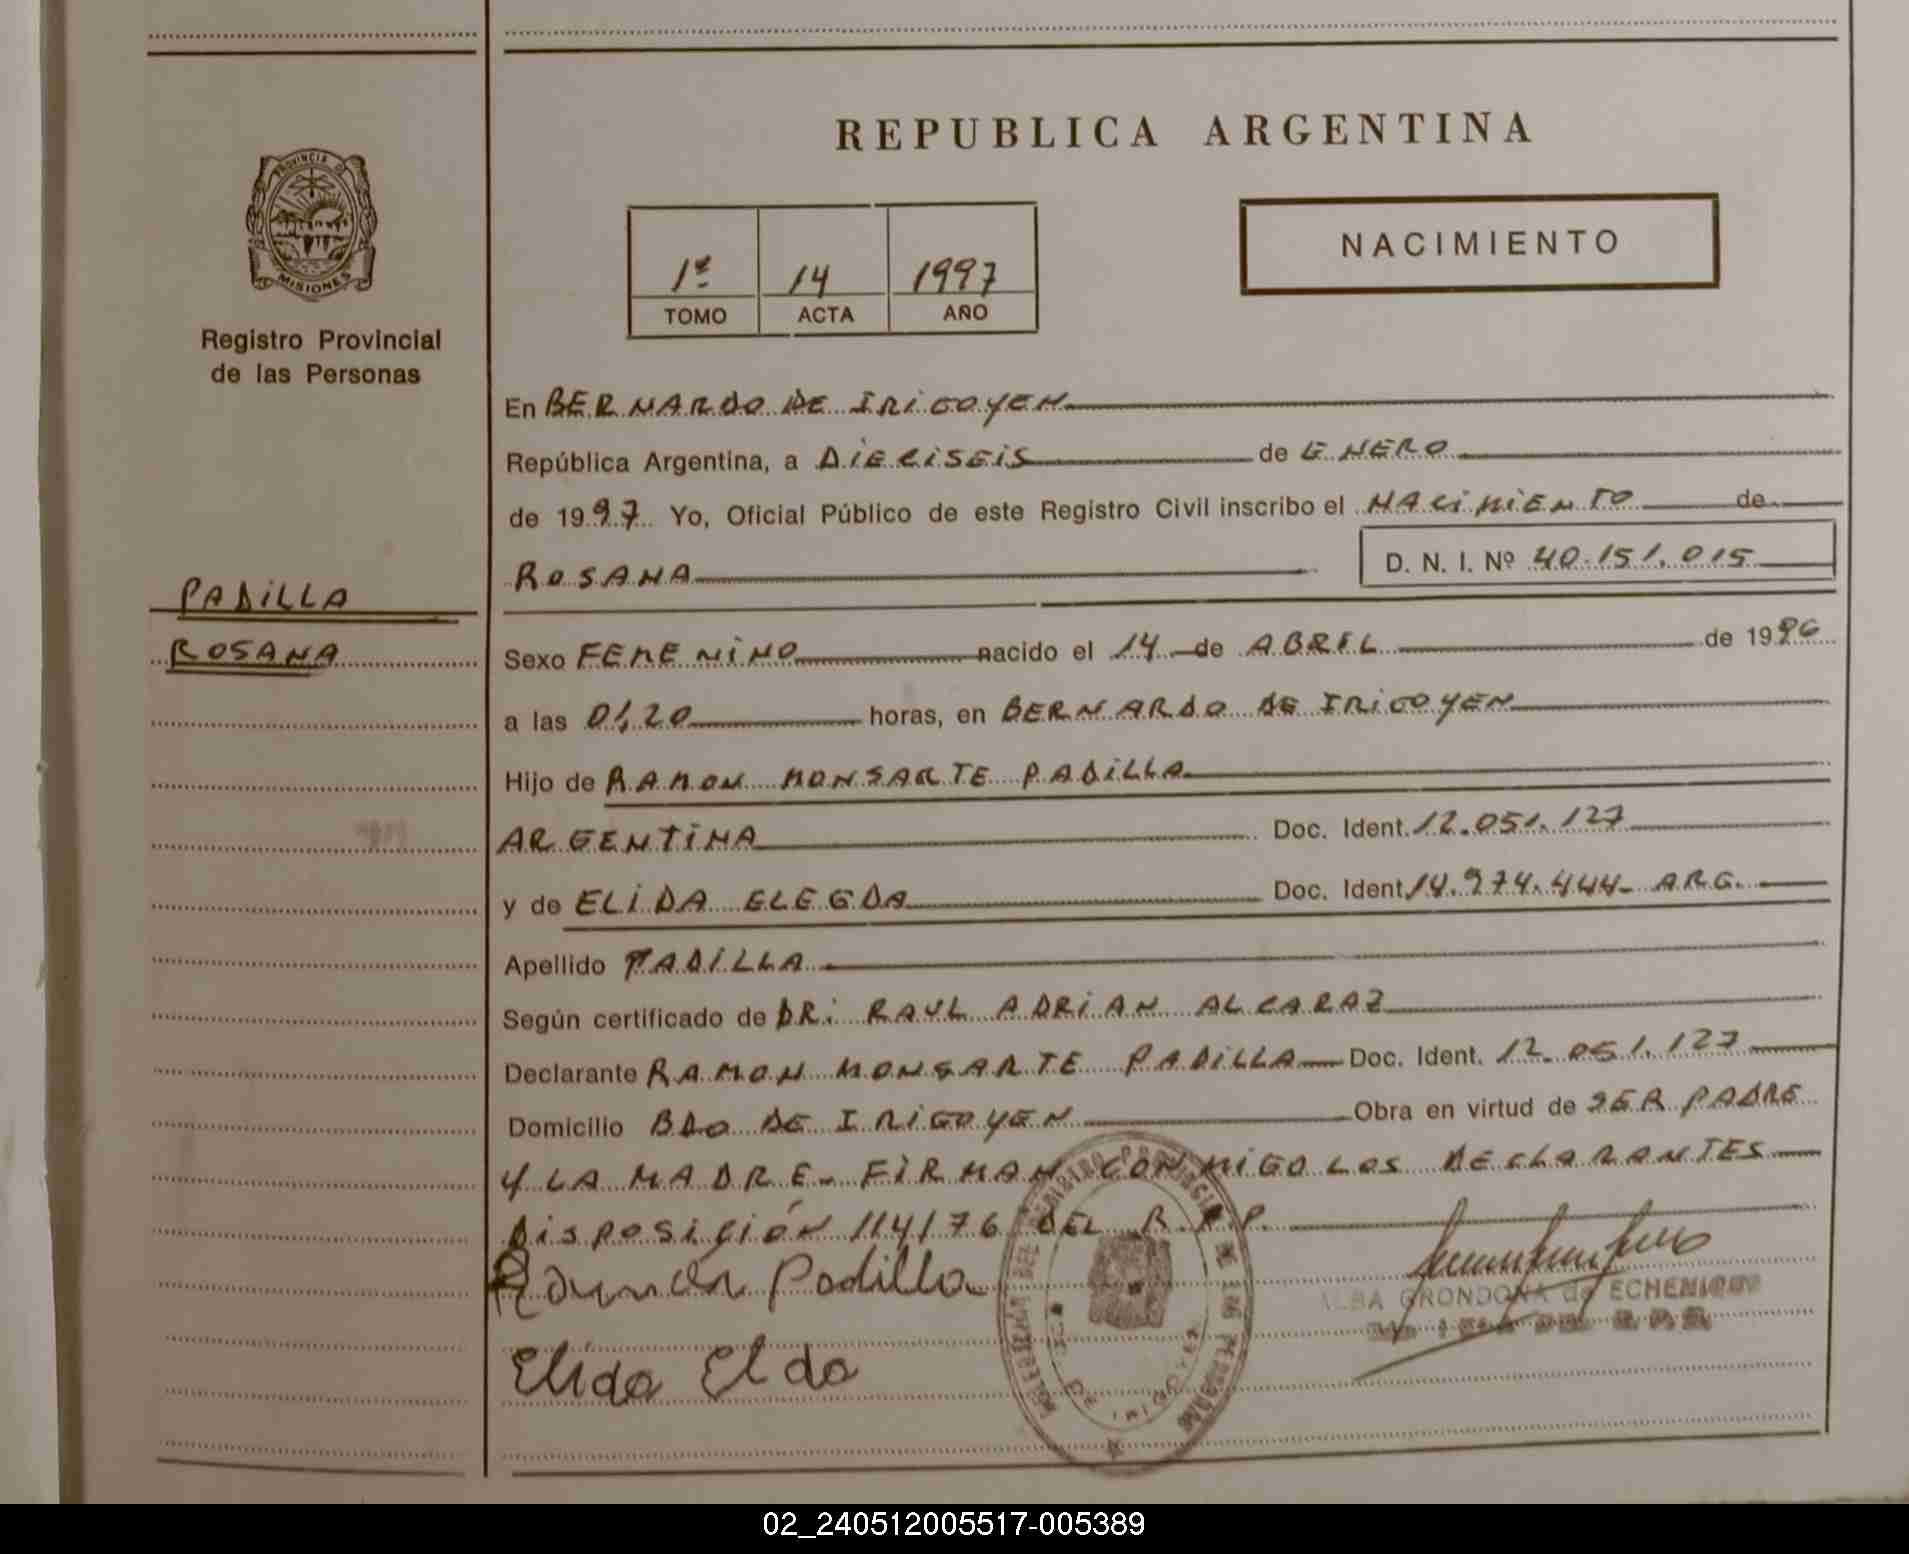 REPUBLICA ARGENTINA
PROVINCIA DE MISIONES
Registro Provincial
de las Personas
1º 14 1997
TOMO ACTA AÑO
NACIMIENTO
En BERNARDO DE IRIGOYEN
República Argentina, a DIECISEIS de ENERO
de 1997 Yo, Oficial Público de este Registro Civil inscribo el NACIMIENTO de
ROSANA D. N. I. Nº 40.151.015
PADILLA
ROSANA
Sexo FEMENINO nacido el 14 de ABRIL de 1996
a las 01,20 horas, en BERNARDO DE IRIGOYEN
Hijo de RAMON MONSARTE PADILLA
ARGENTINA Doc. Ident. 12.051.127
y de ELIDA ELEGDA Doc. Ident 14.974.444- ARG.
Apellido PADILLA
Según certificado de DR: RAUL ADRIAN ALCARAZ
Declarante RAMON MONSARTE PADILLA Doc. Ident. 12.051.127
Domicilio BDO DE IRIGOYEN Obra en virtud de SER PADRE
Y LA MADRE- FIRMAN CONMIGO LOS DECLARANTES
DISPOSICIÓN 114/76 DEL R.P.P.
Ramon Padilla
ALBA GRONDONA de ECHENIQUE
Elida Elda
REGISTRO PROVINCIAL DE LAS PERSONAS
02_240512005517-005389